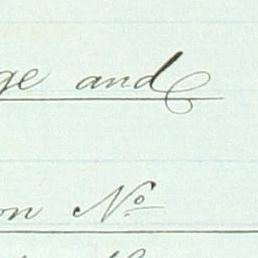 ge and
on No